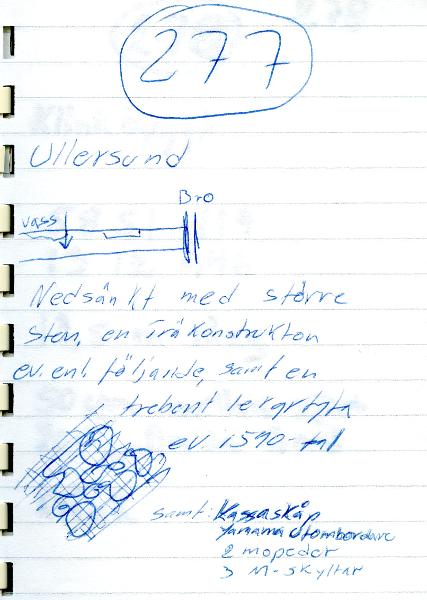 277
Ullersund
Bro
vass
Nedsänkt med större
sten, en Träkonstrukton
ev. enl. följande, samt en
trebent lergryta
ev. 1590-tal
samt: Kassaskåp
Yamama utombordare
2 mopeder
3 M-skyltar